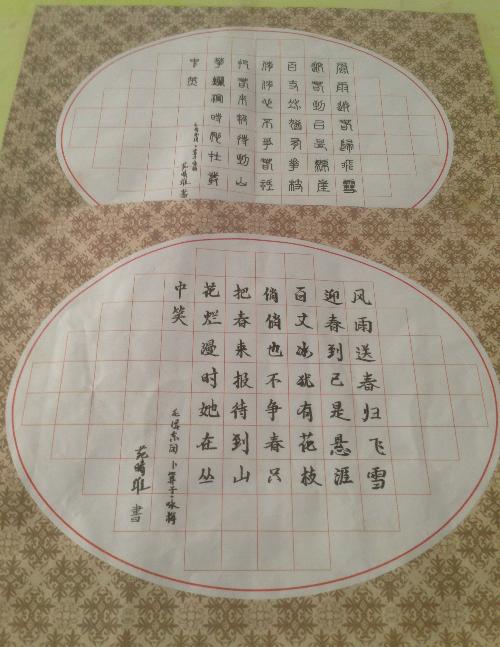 風雨送春歸飛雪
迎春到已是懸崖
百丈冰猶有花枝
俏俏也不爭春只
把春來報待到山
花爛漫時她在叢
中笑
毛泽东词 卜算子·咏梅
晴雅書
风雨送春归飞雪
迎春到已是悬涯
百丈冰犹有花枝
俏俏也不争春只
把春来报待到山
花烂漫时她在丛
中笑
毛泽东词 卜算子·咏梅
晴雅書